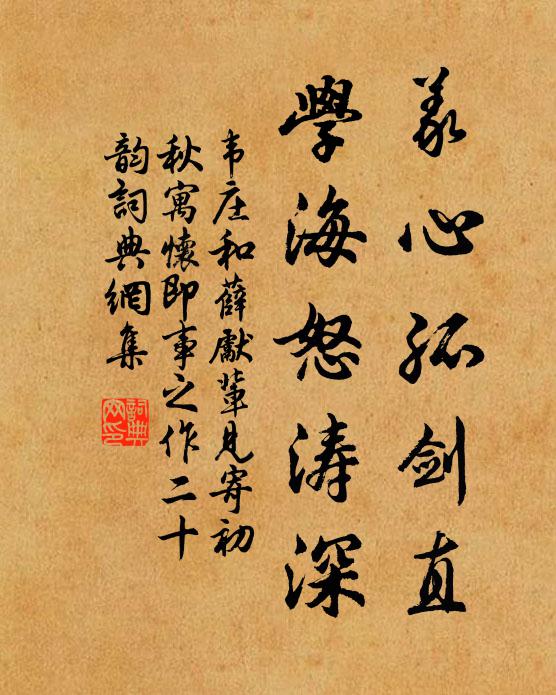 義心孤剑直
學海怒涛深
韦庄和薛獻輩見寄初
秋寓懷即事之作二十
韵詞典網集
詞典
网印